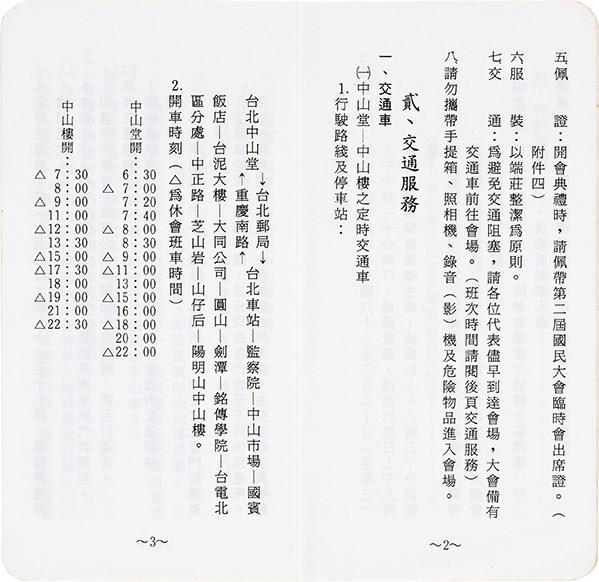 五、佩　　證：開會典禮時，請佩帶第二屆國民大會臨時會出席證。（
附件四）
六、服　　裝：以端莊整潔爲原則。
七、交　　通：爲避免交通阻塞，請各位代表儘早到達會場，大會備有
交通車前往會場。（班次時間請閱後頁交通服務）
八、請勿攜帶手提箱、照相機、錄音（影）機及危險物品進入會場。
貳、交通服務
一、交通車
㈠中山堂—中山樓之定時交通車
1.行駛路綫及停車站：
～2～
台北中山堂
↓台北郵局↓
↑重慶南路↑
台北車站—監察院—中山市場—國賓
飯店—台泥大樓—大同公司—圓山—劍潭—銘傳學院—台電北
區分處—中正路—芝山岩—山仔后—陽明山中山樓。
2.開車時刻（△爲休會班車時間）
中山堂開：
6：30
△ 7：00
7：20
7：40
△ 8：00
8：30
△ 9：00
△11：00
13：00
△15：00
16：00
△18：00
20：00
△22：00
中山樓開：
△ 7：30
8：00
△ 9：00
11：00
△12：00
13：30
△15：30
△17：30
18：00
△19：00
21：00
△22：30
～3～